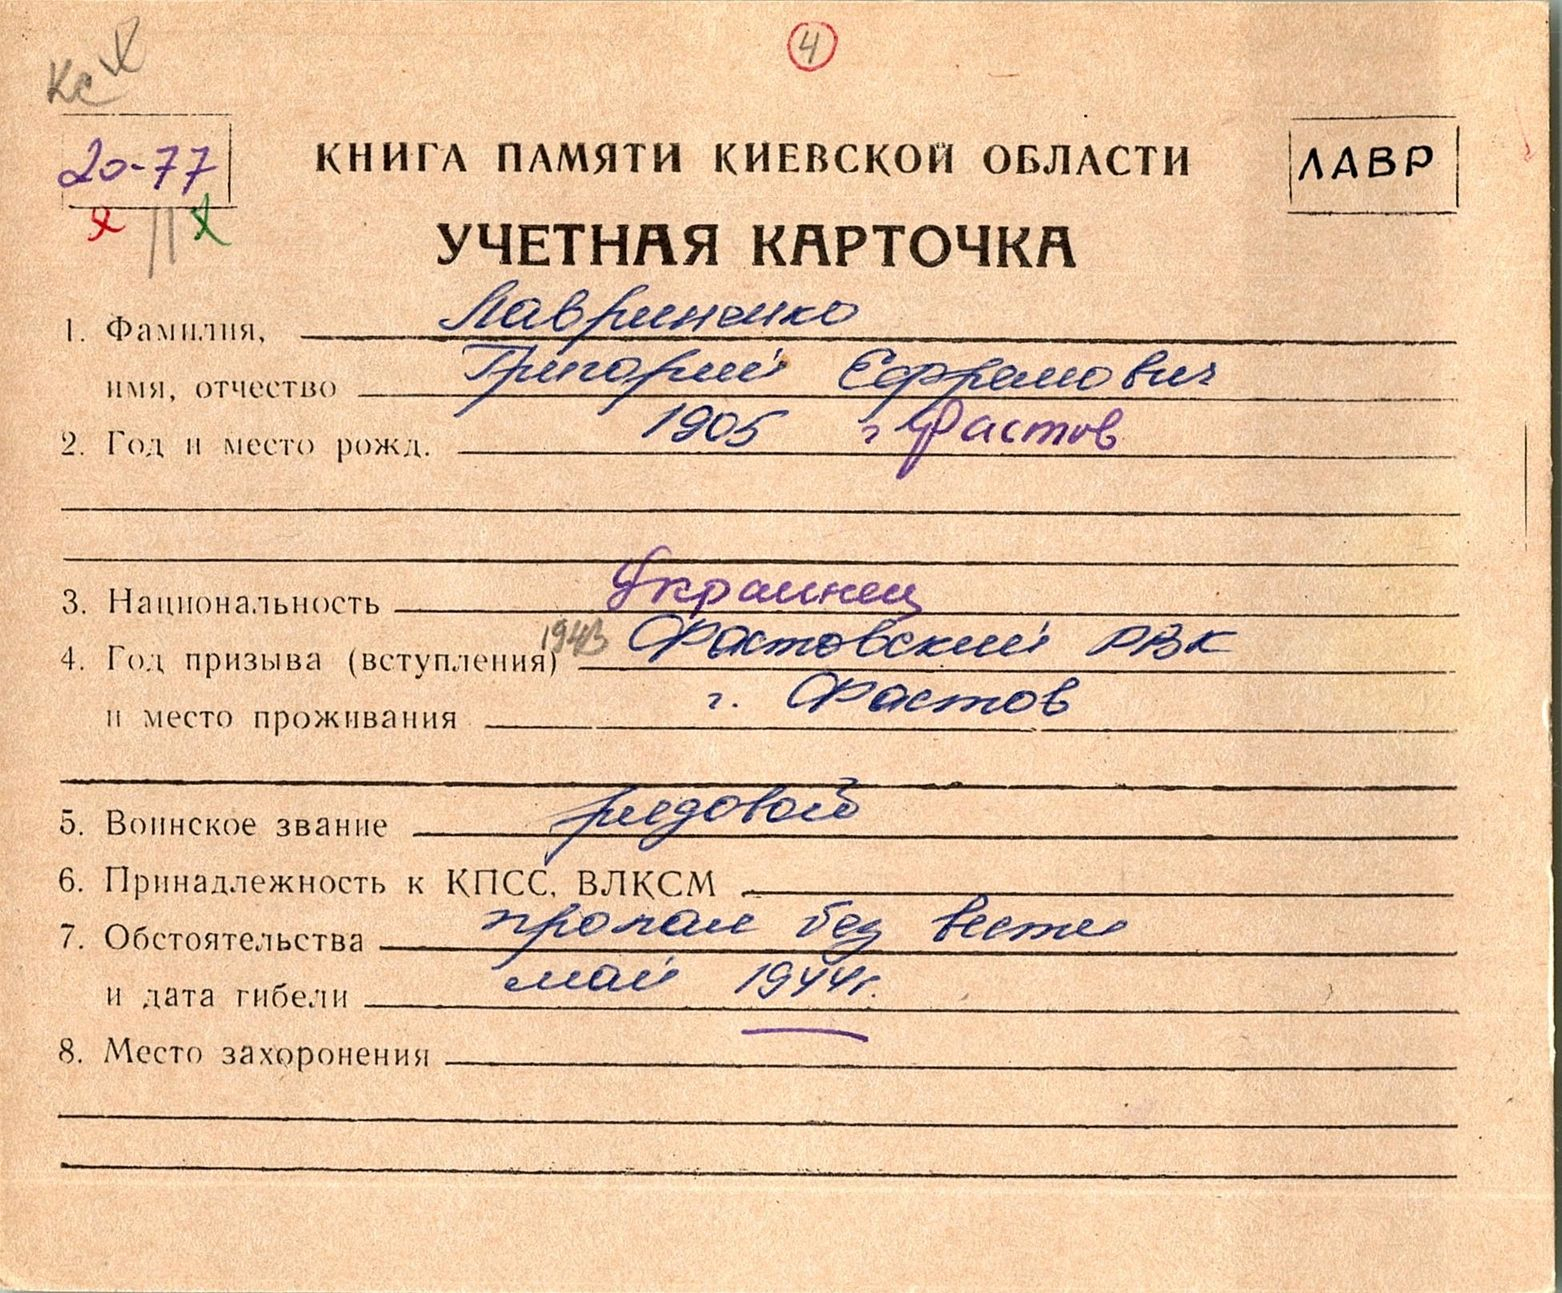 4
Кс
20-77
КНИГА ПАМЯТИ КИЕВСКОЙ ОБЛАСТИ
ЛАВР
УЧЕТНАЯ КАРТОЧКА
1. Фамилия, Лавриненко
имя, отчество Григорий Ефремович
2. Год и место рожд. 1905 г Фастов
3. Национальность Украинец
4. Год призыва (вступления) 1943 Фастовский РВК
и место проживания г. Фастов
5. Воинское звание рядовой
6. Принадлежность к КПСС, ВЛКСМ
7. Обстоятельства пропал без вести
и дата гибели май 1944г.
8. Место захоронения